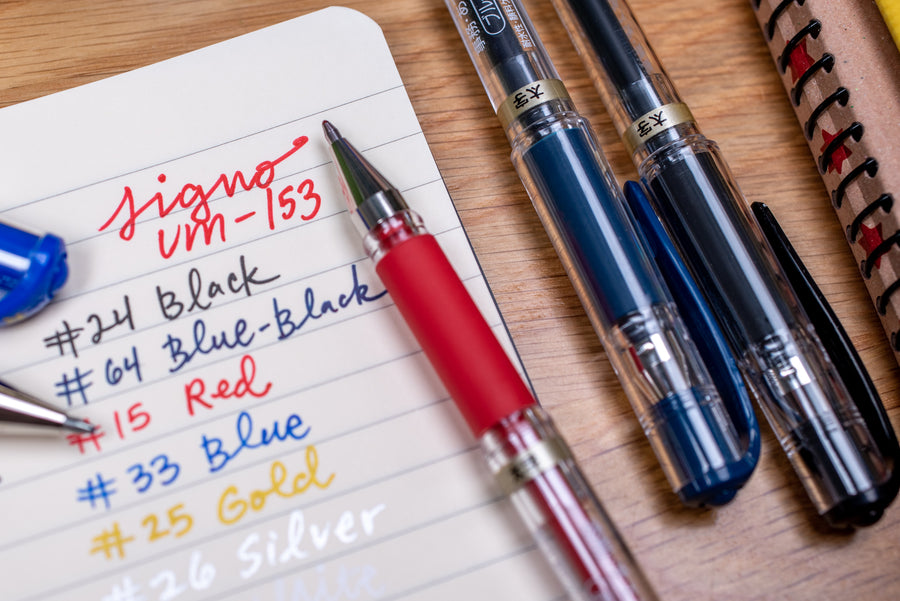 signo
um-153
#24 Black
#64 Blue-Black
#15 Red
#33 Blue
#25 Gold
#26 Silver
太字
太字